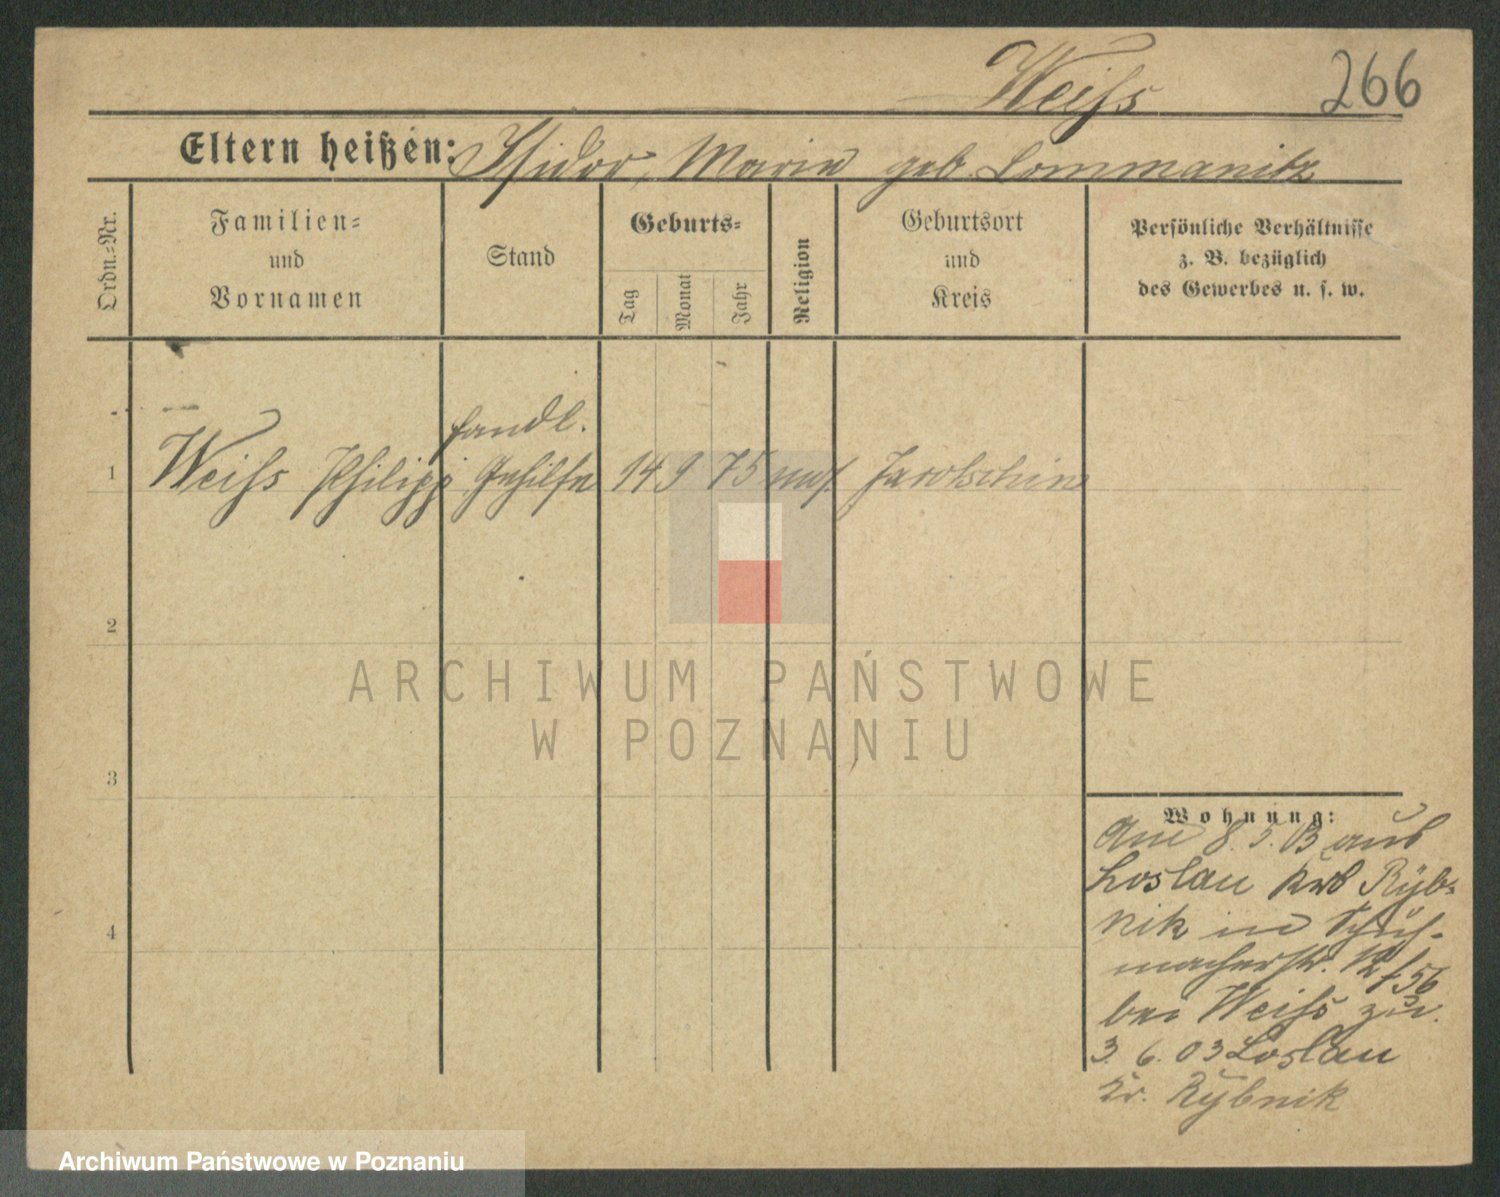 Weiss 266
Eltern heißen: Isidor, Marie geb. Lommanitz
Ordn.=Nr.
Familien=
und
Vornamen
Stand
Geburts=
Tag
Monat
Jahr
Religion
Geburtsort
und
Kreis
Persönliche Verhältnisse
z. B. bezüglich
des Gewerbes u. s. w.
Handl.
1 Weiss Philipp Gehilfe 14 9 75 mos. Jarotschin
2
ARCHIWUM PAŃSTWOWE
W POZNANIU
3
4
Wohnung:
8. 5. 03 aus
Loslau Krs Ryb=
nik in Schuh-
macherstr. 12
bei Weiss zu.
3. 6. 03 Loslau
Kr. Rybnik
Archiwum Państwowe w Poznaniu